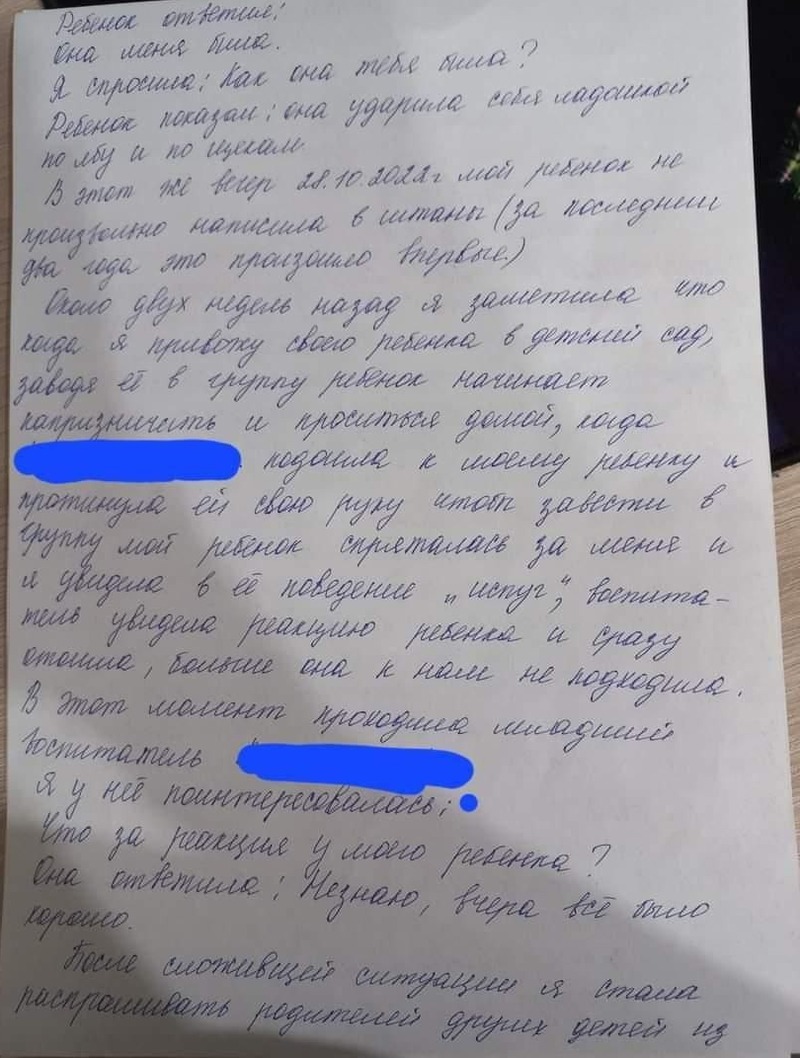 Ребенок ответил:
Она меня била.
Я спросила: Как она тебя била?
Ребенок показал: она ударила себя ладошкой
по лбу и по щекам.
В этот же вечер 28.10.2022г мой ребенок не
произвольно написила в штаны (за последнии
два года это произошло впервые)
Около двух недель назад я заметила что
когда я привожу своего ребенка в детский сад,
заводя её в группу ребенок начинает
капризничать и проситься домой, когда
подошла к моему ребенку и
протянула ей свою руку чтобы завести в
группу мой ребенок спряталась за меня и
я увидела в её поведение „испуг“, воспита-
тель увидела реакцию ребенка и сразу
отошла, больше она к нам не подходила.
В этот момент проходила младший
воспитатель
Я у неё поинтересовалась:
Что за реакция у моего ребенка?
Она ответила: Незнаю, вчера всё было
хорошо.
После сложившей ситуации я стала
распрашивать родителей других детей из